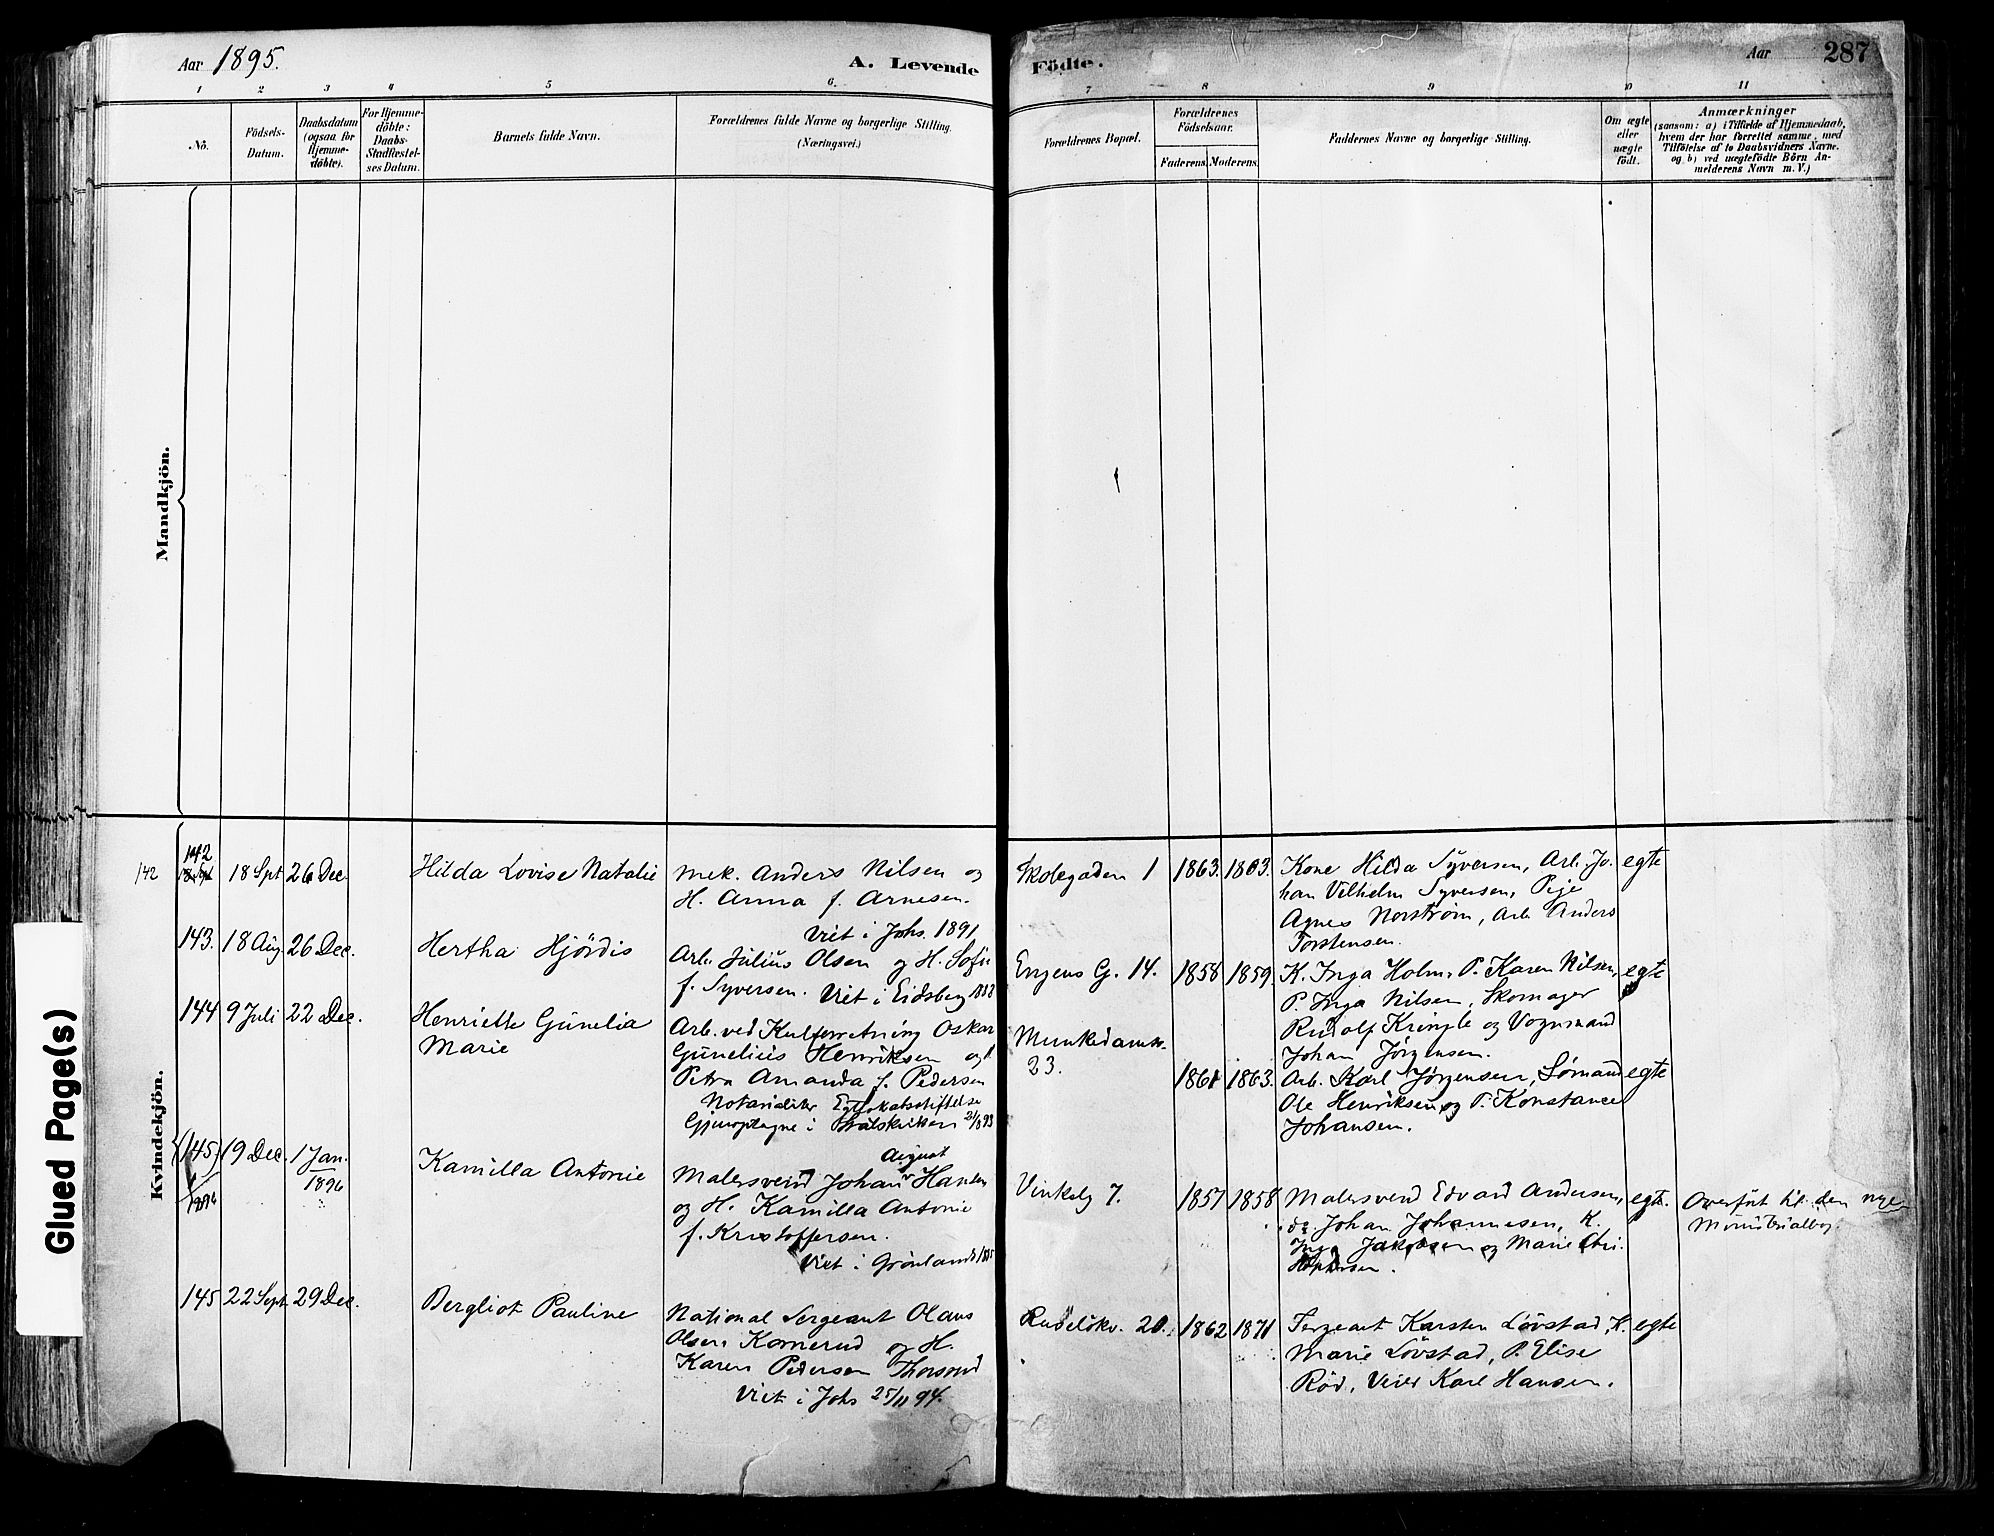 Aar 1895.
A. Levende
Födte.
Aar 287
1 2 3 4 5 6. 7 8 9 10 11
No.
Födsels-
Datum.
Daabsdatum
(ogsaa for
Hjemme-
döbte).
For Hjemme-
döbte:
Daabs-
Stadfæstel-
ses Datum.
Barnets fulde Navn.
Forældrenes fulde Navne og borgerlige Stilling.
(Næringsvei.)
Forældrenes Bopæl.
Forældrenes
Födselsaar.
Faderens. Moderens.
Faddernes Navne og borgerlige Stilling.
Om ægte
eller
uægte
födt.
Anmærkninger
(saasom: a) i Tilfælde af Hjemmedaab,
hvem der har forrettet samme, med
Tilföielse af to Daabsvidners Navne.
og b) ved uægtefödte Börn An-
melderens Navn m. V.)
Mandkjön.
Kvindekjön.
Glued Page(s)
142
142
18 Spt
26 Dec
Hilda Lovise Natalie
Mek. Anders Nilsen og
H. Anna f. Arnesen.
Viet i Johs. 1891
Skolegaden 1
1863
1863.
Kone Hilda Syversen, Arb. Jo.
han Vilhelm Syversen, Pige
Agnes Norström, Arb. Anders
Torstensen.
egte
143.
18 Aug.
26 Dec.
Hertha Hjördis
Arb. Julius Olsen og H. Sofie
f. Syversen. Viet i Eidsberg 1888
Enzens G. 14.
1858
1859.
K. Inga Holm, P. Karen Nilsen,
P. Inga Nilsen, Skomager
Rudolf Kringle og Vognmand
Johan Jörgensen.
egte
144
9 Juli
22 Dec.
Henriette Gunelia
Marie
Arb. ved Kulforretning Oskar
Gunelius Henriksen og
Petra Amanda f. Pedersen
Gjenoptagne i
Munkedamsv.
23.
1861
1863.
Arb. Karl Jörgensen, Sömand
Ole Henriksen og P. Konstance
Johansen.
egte
(145)
1/1896
19 Dec.
1 Jan.
1896
Kamilla Antonie
August
Malersvend Johan Hansen
og H. Kamilla Antonie
f. Kristoffersen.
Viet i Grönland 1885
Vinkelg 7.
1857
1858
Malersvend Edvard Andersen,
do. Johan Johannesen, K.
Inga Jakobsen og Marie Chri.
stophersen.
egte.
Overfört til den nye
Ministerialbog.
145
22 Sept.
29 Dec.
Bergliot Pauline
National Sergeant Olaus
Olsen Kornerud og H.
Karen Pedersen Thorsrud
Viet i Johs 25/11 94.
Rudelökv. 20.
1862
1871
Sergeant Karsten Lövstad, K.
Marie Lövstad, P. Elise
Röd, Karl Hansen.
egte